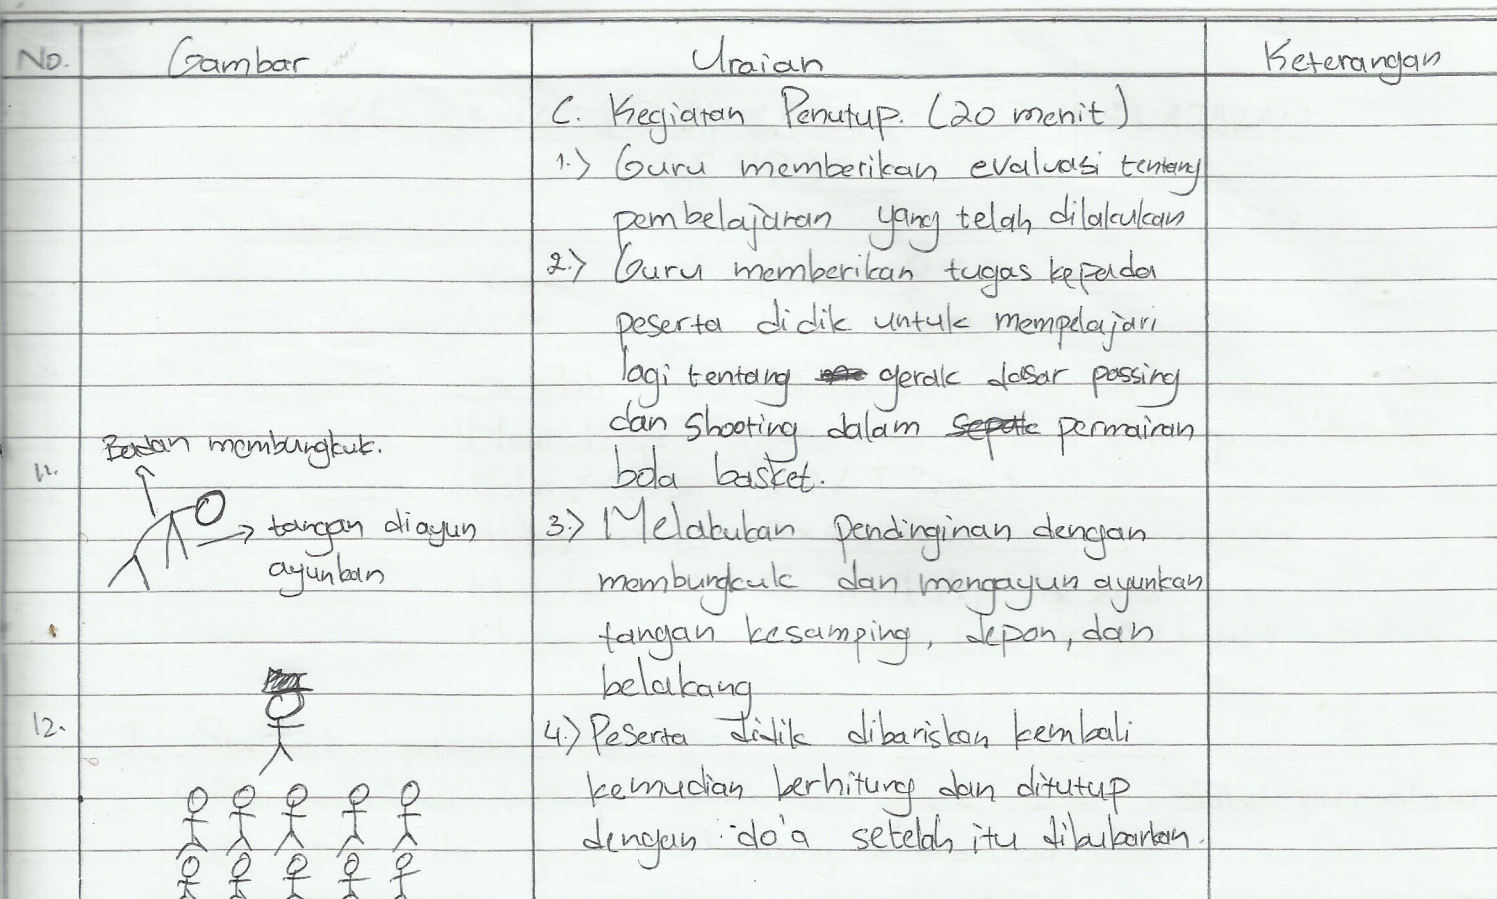 No. Gambar Uraian Keterangan
C. Kegiatan Penutup. (20 menit)
1.) Guru memberikan evaluasi tentang
pembelajaran yang telah dilakukan
2.) Guru memberikan tugas kepada
peserta didik untuk mempelajari
lagi tentang gerak dasar passing
dan shooting dalam permainan
bola basket.
11. Badan membungkuk.
tangan diayun
ayunkan
3.) Melakukan pendinginan dengan
membungkuk dan mengayun ayunkan
tangan kesamping, depan, dan
belakang
12.
4.) Peserta didik dibariskan kembali
kemudian berhitung dan ditutup
dengan do'a setelah itu dibubarkan.